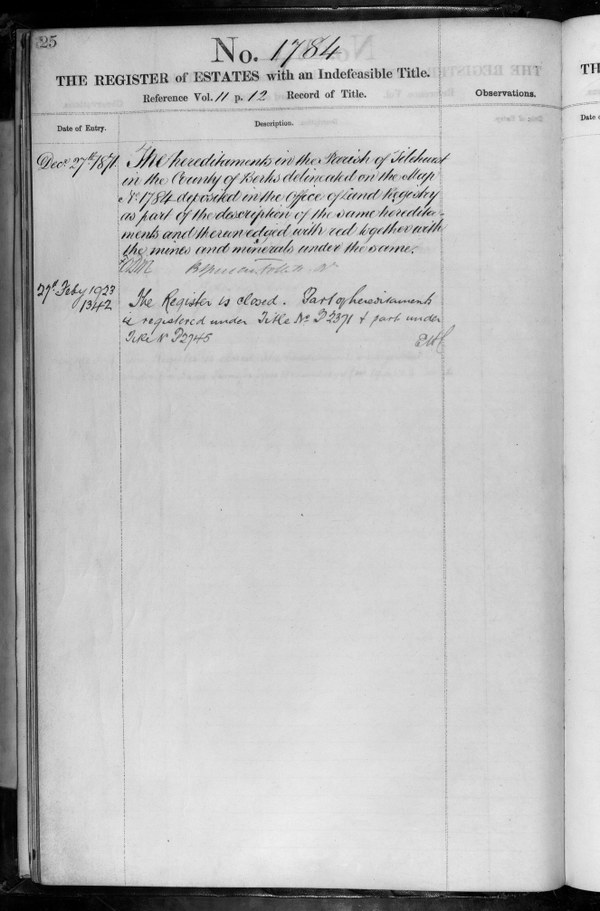 25
No. 1784
THE REGISTER of ESTATES with an Indefeasible Title.
Reference Vol. 11 p. 12 Record of Title.
Observations.
Date of Entry.
Description.
Decr. 27th 1871.
The hereditaments in the Parish of Tilehurst
in the County of Berks delineated on the Map
No. 1784 deposited in the Office of Land Registry
as part of the description of the same heredita-
ments and thereon edged with red together with
the mines and minerals under the same.
27th Feby 1923
1342
The Register is closed. Part of hereditaments
is registered under Title No. P2371 & part under
Title No P2745
TH
Date o